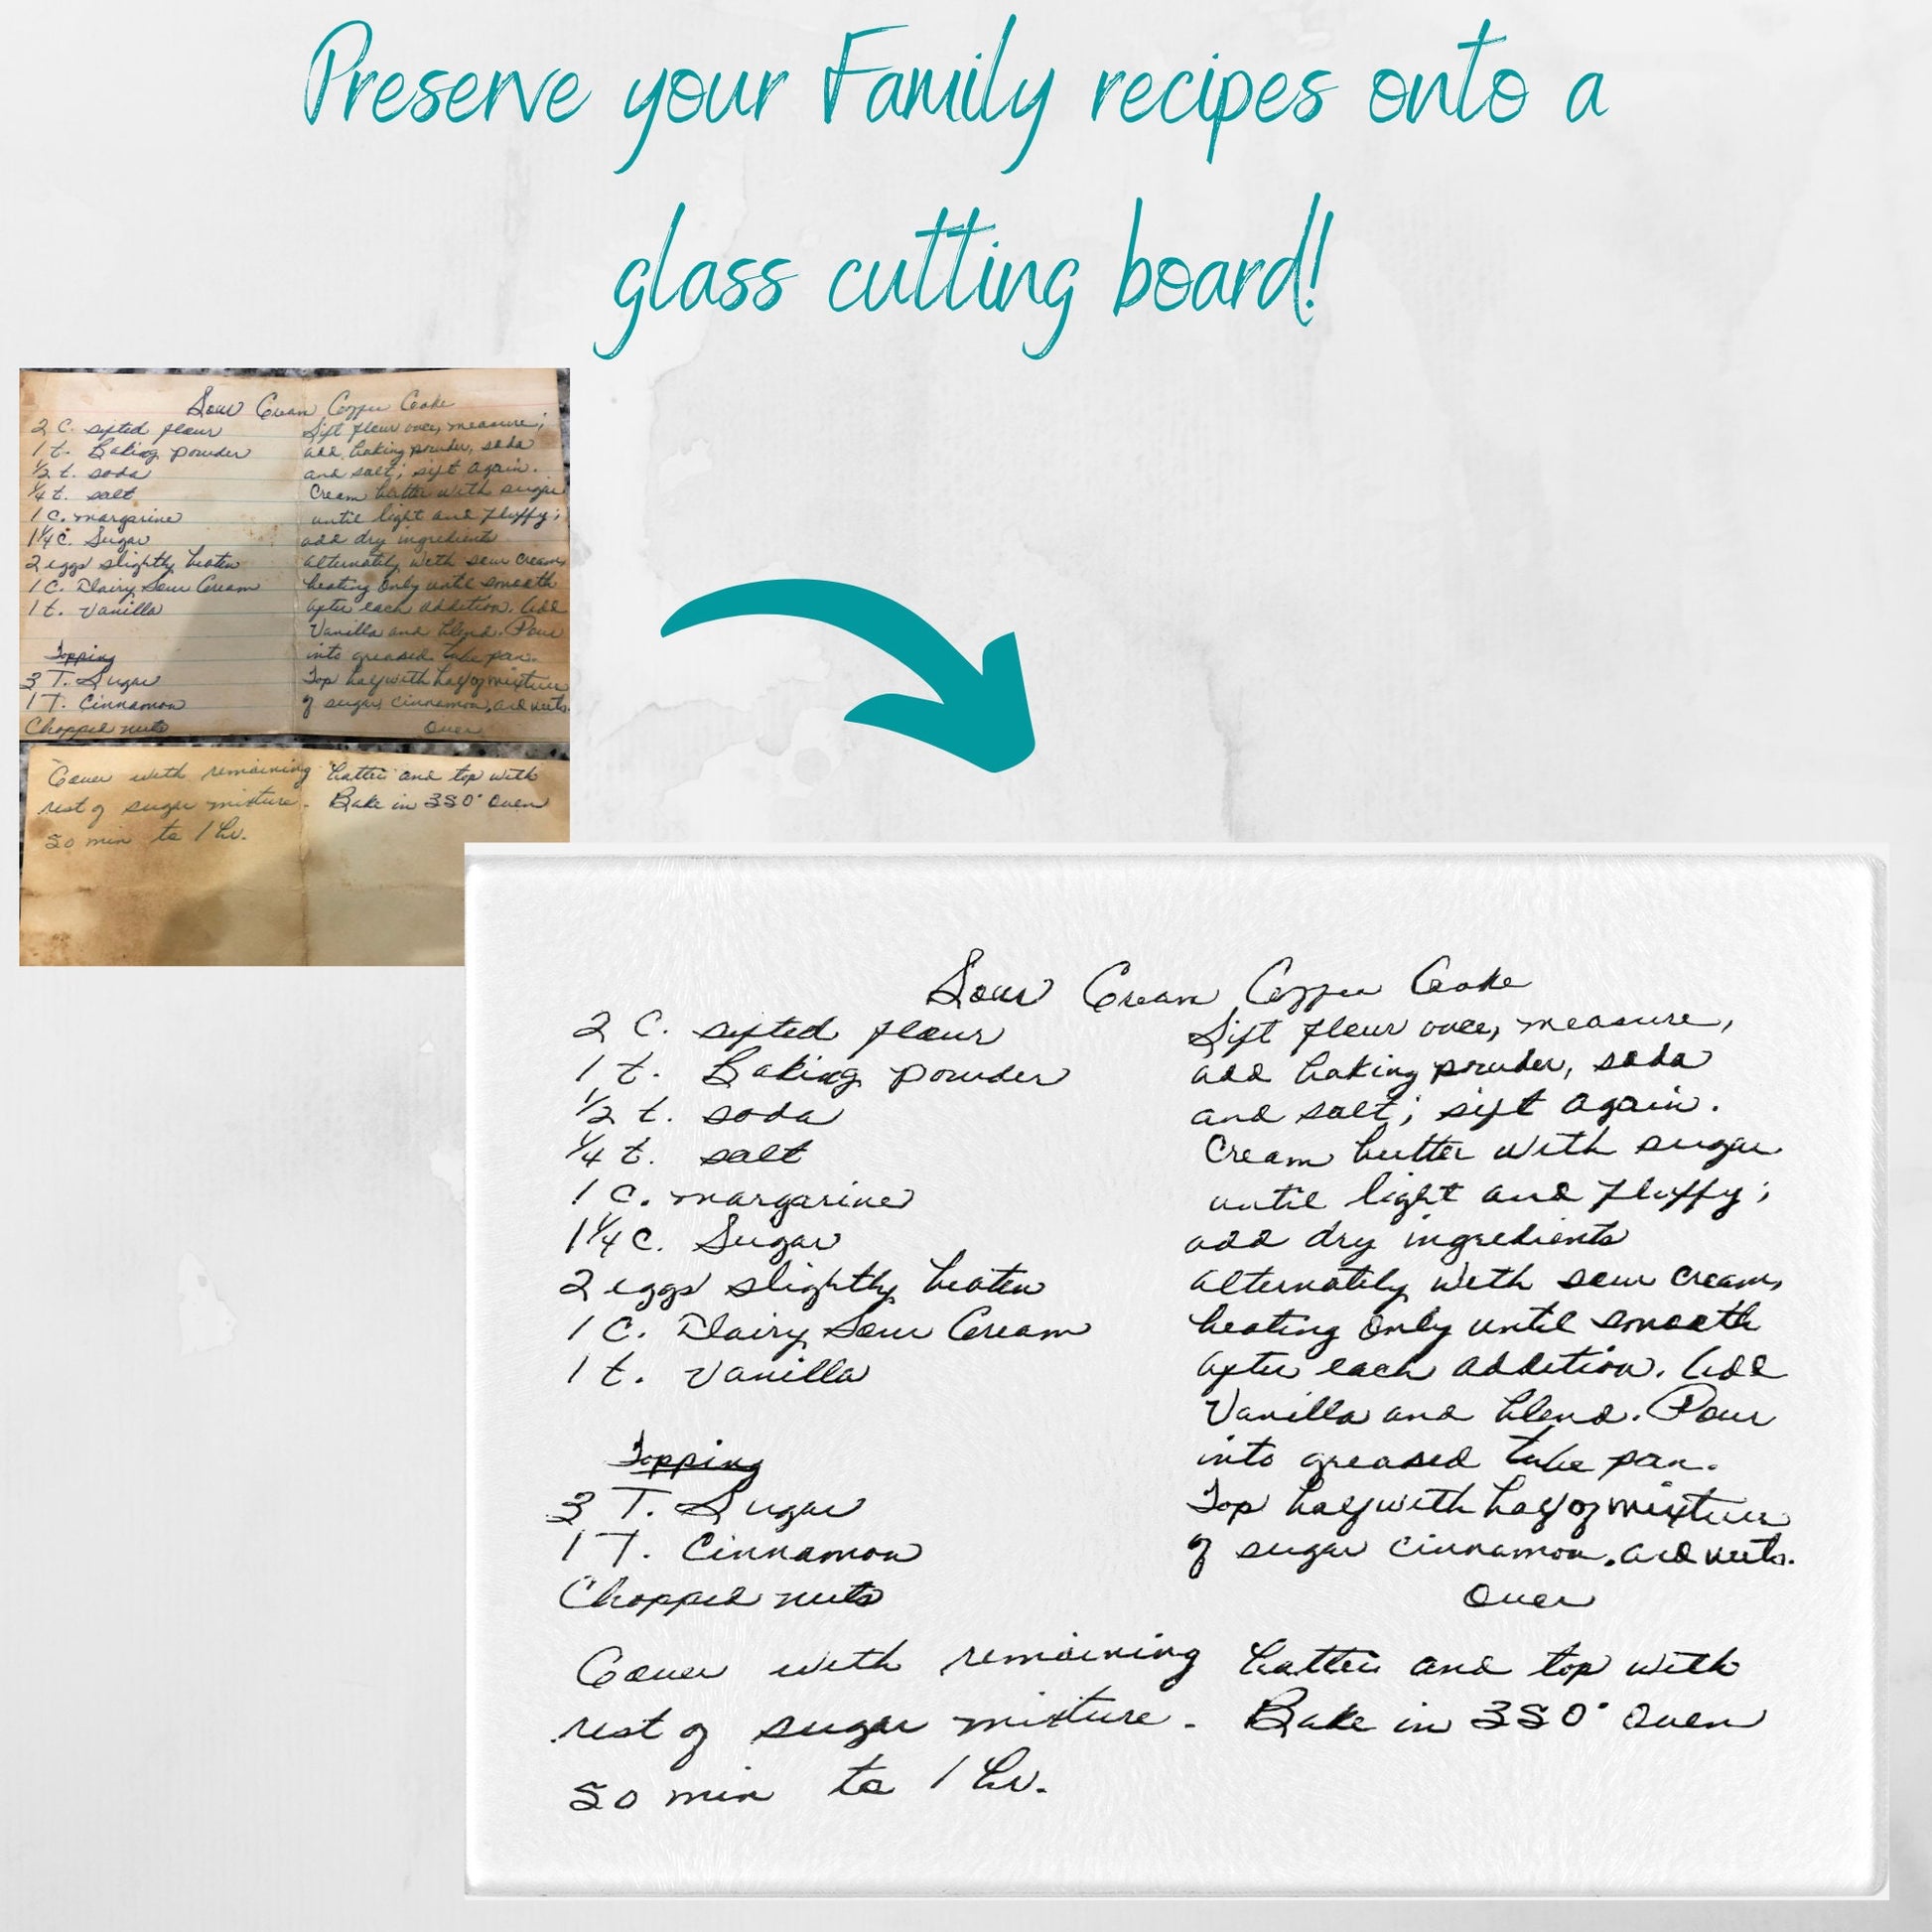 Preserve your Family recipes onto a
glass cutting board!
Sour Cream Coffee Cake
2 C. sifted flour
1 t. Baking powder
1/2 t. soda
1/4 t. salt
1 C. margarine
1 1/4 C. Sugar
2 eggs slightly beaten
1 C. Dairy Sour Cream
1 t. Vanilla
Topping
3 T. Sugar
1 T. Cinnamon
Chopped nuts
Sift flour once, measure;
add baking powder, soda
and salt; sift again.
Cream butter with sugar
until light and fluffy;
add dry ingredients
alternately with sour cream,
beating only until smooth
after each addition. Add
Vanilla and blend. Pour
into greased tube pan.
Top half with half of mixture
of sugar, cinnamon, and nuts.
Over
Cover with remaining batter and top with
rest of sugar mixture. Bake in 350° Oven
50 min to 1 hr.
Sour Cream Coffee Cake
2 C. sifted flour
1 t. Baking powder
1/2 t. soda
1/4 t. salt
1 C. margarine
1 1/4 C. Sugar
2 eggs slightly beaten
1 C. Dairy Sour Cream
1 t. Vanilla
Topping
3 T. Sugar
1 T. Cinnamon
Chopped nuts
Sift flour once, measure,
add baking powder, soda
and salt; sift again.
Cream butter with sugar
until light and fluffy;
add dry ingredients
alternately with sour cream,
beating only until smooth
after each addition. Add
Vanilla and blend. Pour
into greased tube pan.
Top half with half of mixture
of sugar cinnamon. and nuts.
Over
Cover with remaining batter and top with
rest of sugar mixture. Bake in 350° Oven
50 min to 1 hr.